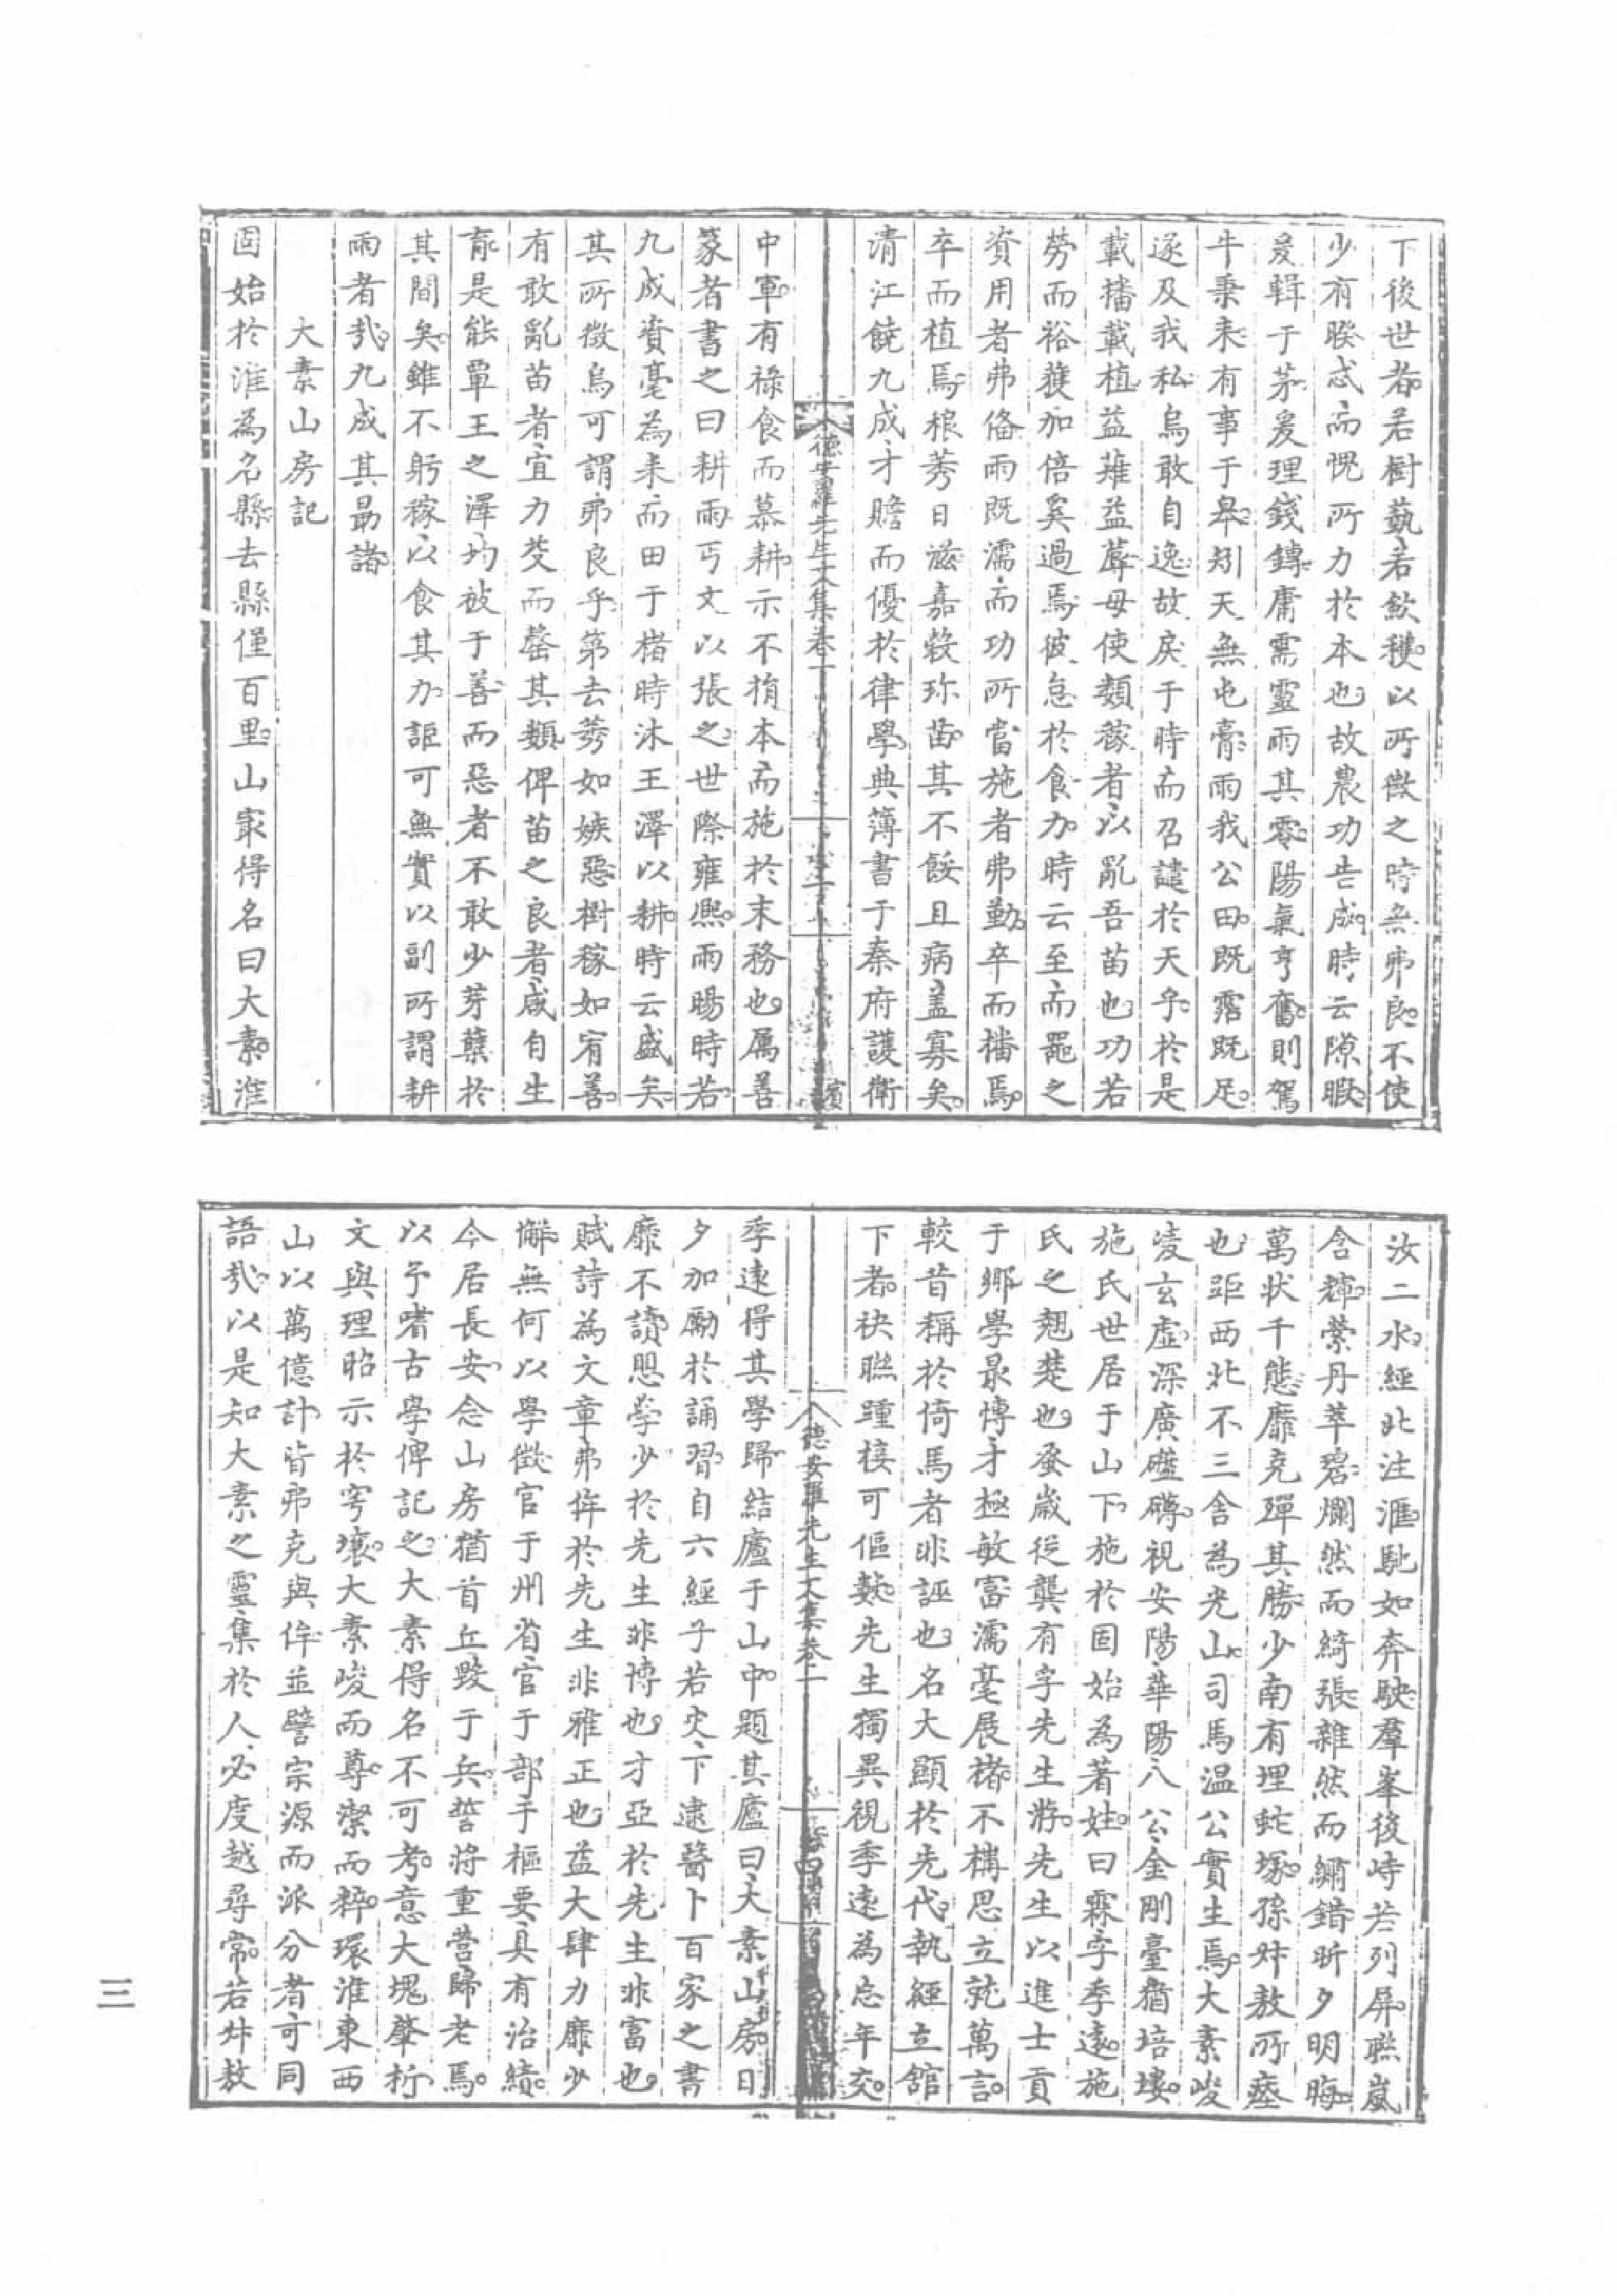 下後世者若樹藝若飲穫以所徵之時無弗良不使
少有睽忒而愧所力於本也故農功告成時云隙暇
爰輯于茅爰理錢鎛庸需靈雨其零陽氣亨奮則駕
牛秉耒有事于皋矧天無屯膏雨我公田既霑既足
遂及我私烏敢自逸故戾于時而召譴於天乎於是
載播載植益薙益蓐毋使類稼者以亂吾苗也功若
勞而裕穫加倍奚過焉彼怠於食力時云至而罷之
資用者弗俻雨既濡而功所當施者弗勤卒而播焉
卒而植焉稂莠日滋嘉穀珎苗其不餒且病盖寡矣
清江饒九成才贍而優於律學典簿書于秦府護衛
德安羅先生文集卷一
中軍有祿食而慕耕示不揹本而施於末務也属善
篆者書之曰耕雨丐文以張之世際雍熈雨暘時若
九成資毫為耒而田于楮時沐王澤以耕時云盛矣
其所徵烏可謂弗良乎第去莠如嫉惡樹稼如宥善
有敢亂苗者宜力芟而罄其類俾苗之良者咸自生
育是能覃王之澤均被于善而惡者不敢少芽蘖於
其間矣雖不躬稼以食其力詎可無實以副所謂耕
雨者㢤九成其勗諸
大素山房記
固始於淮為名縣去縣僅百里山㝡得名曰大素淮
汝二水經北注滙馳如奔駃羣峯後峙若列屏聮嵐
含輝縈丹萃碧爛然而綺張雜然而繡錯昕夕明晦
萬状千態靡克殫其勝少南有埋蛇塚孫叔敖所瘞
也距西北不三舍為光山司馬温公實生焉大素峻
凌玄虛深廣礚礴視安陽華陽八公金剛臺猶培塿
施氏世居于山下施於固始為著姓曰霖字季遠施
氏之翹楚也蚤歲從龔有字先生游先生以進士貢
于鄉學㝡愽才極敏富濡毫展楮不構思立就萬言
較昔稱於倚馬者非誣也名大顯於先代執經立舘
下者袂聮踵接可傴數先生獨異視季遠為忘年交
德安羅先生文集卷一
季遠得其學歸結廬于山中題其廬曰大素山房日
夕加勵於誦習自六經子若史下逮醫卜百家之書
靡不讀思學少於先生非博也才亞於先生非富也
賦詩為文章弗侔於先生非雅正也益大肆力靡少
懈無何以學徵官于州省官于部手樞要具有治績
今居長安念山房猶首丘毀于兵誓將重營歸老焉
以予嗜古學俾記之大素得名不可考意大塊肇析
文與理昭示於穹壤大素峻而尊潔而粹環淮東西
山以萬億計皆弗克與侔並譬宗源而派分者可同
語㢤以是知大素之靈集於人必度越尋常若叔敖
三